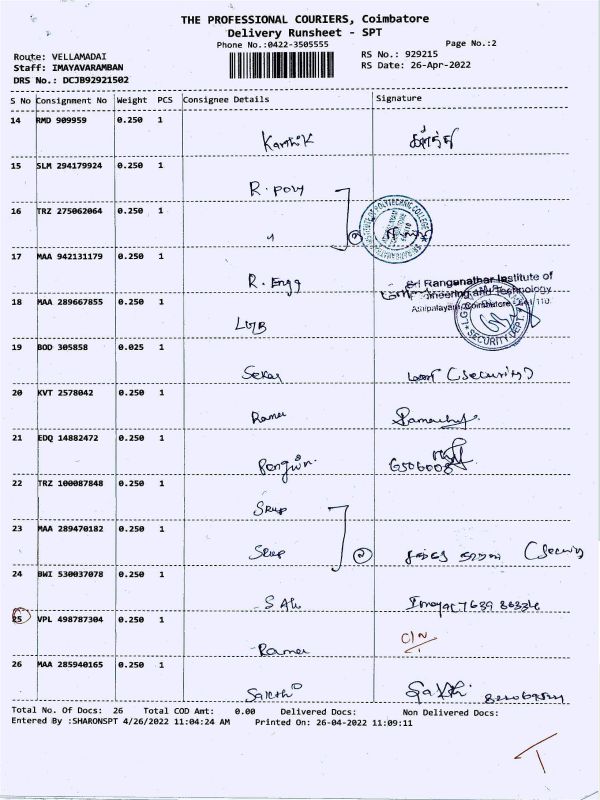 THE PROFESSIONAL COURIERS, Coimbatore
Delivery Runsheet - SPT
Phone No.:0422-3505555
Page No.:2
Route: VELLAMADAI
RS No.: 929215
Staff: IMAYAVARAMBAN
RS Date: 26-Apr-2022
DRS No.: DCJB92921502
S No Consignment No Weight PCS Consignee Details Signature
14 RMD 909959 0.250 1
Karthik
15 SLM 294179924 0.250 1
R. poly
16 TRZ 275062064 0.250 1
②
17 MAA 942131179 0.250 1
R. Engg
Sri Ranganathar Institute of
Engineering and Technology
Athipalayam, Coimbatore - 641 110.
18 MAA 289667855 0.250 1
LGB
SECURITY DEPT.
19 BOD 305858 0.025 1
Sekar (Security)
20 KVT 2578042 0.250 1
Ramea
21 EDQ 14882472 0.250 1
22 TRZ 100087848 0.250 1
23 MAA 289470182 0.250 1
② (Security
24 BWI 530037078 0.250 1
25 VPL 498787304 0.250 1
Ramea C/N
26 MAA 285940165 0.250 1
Sakthi Sakthi
Total No. Of Docs: 26 Total COD Amt: 0.00 Delivered Docs: Non Delivered Docs:
Entered By :SHARONSPT 4/26/2022 11:04:24 AM Printed On: 26-04-2022 11:09:11